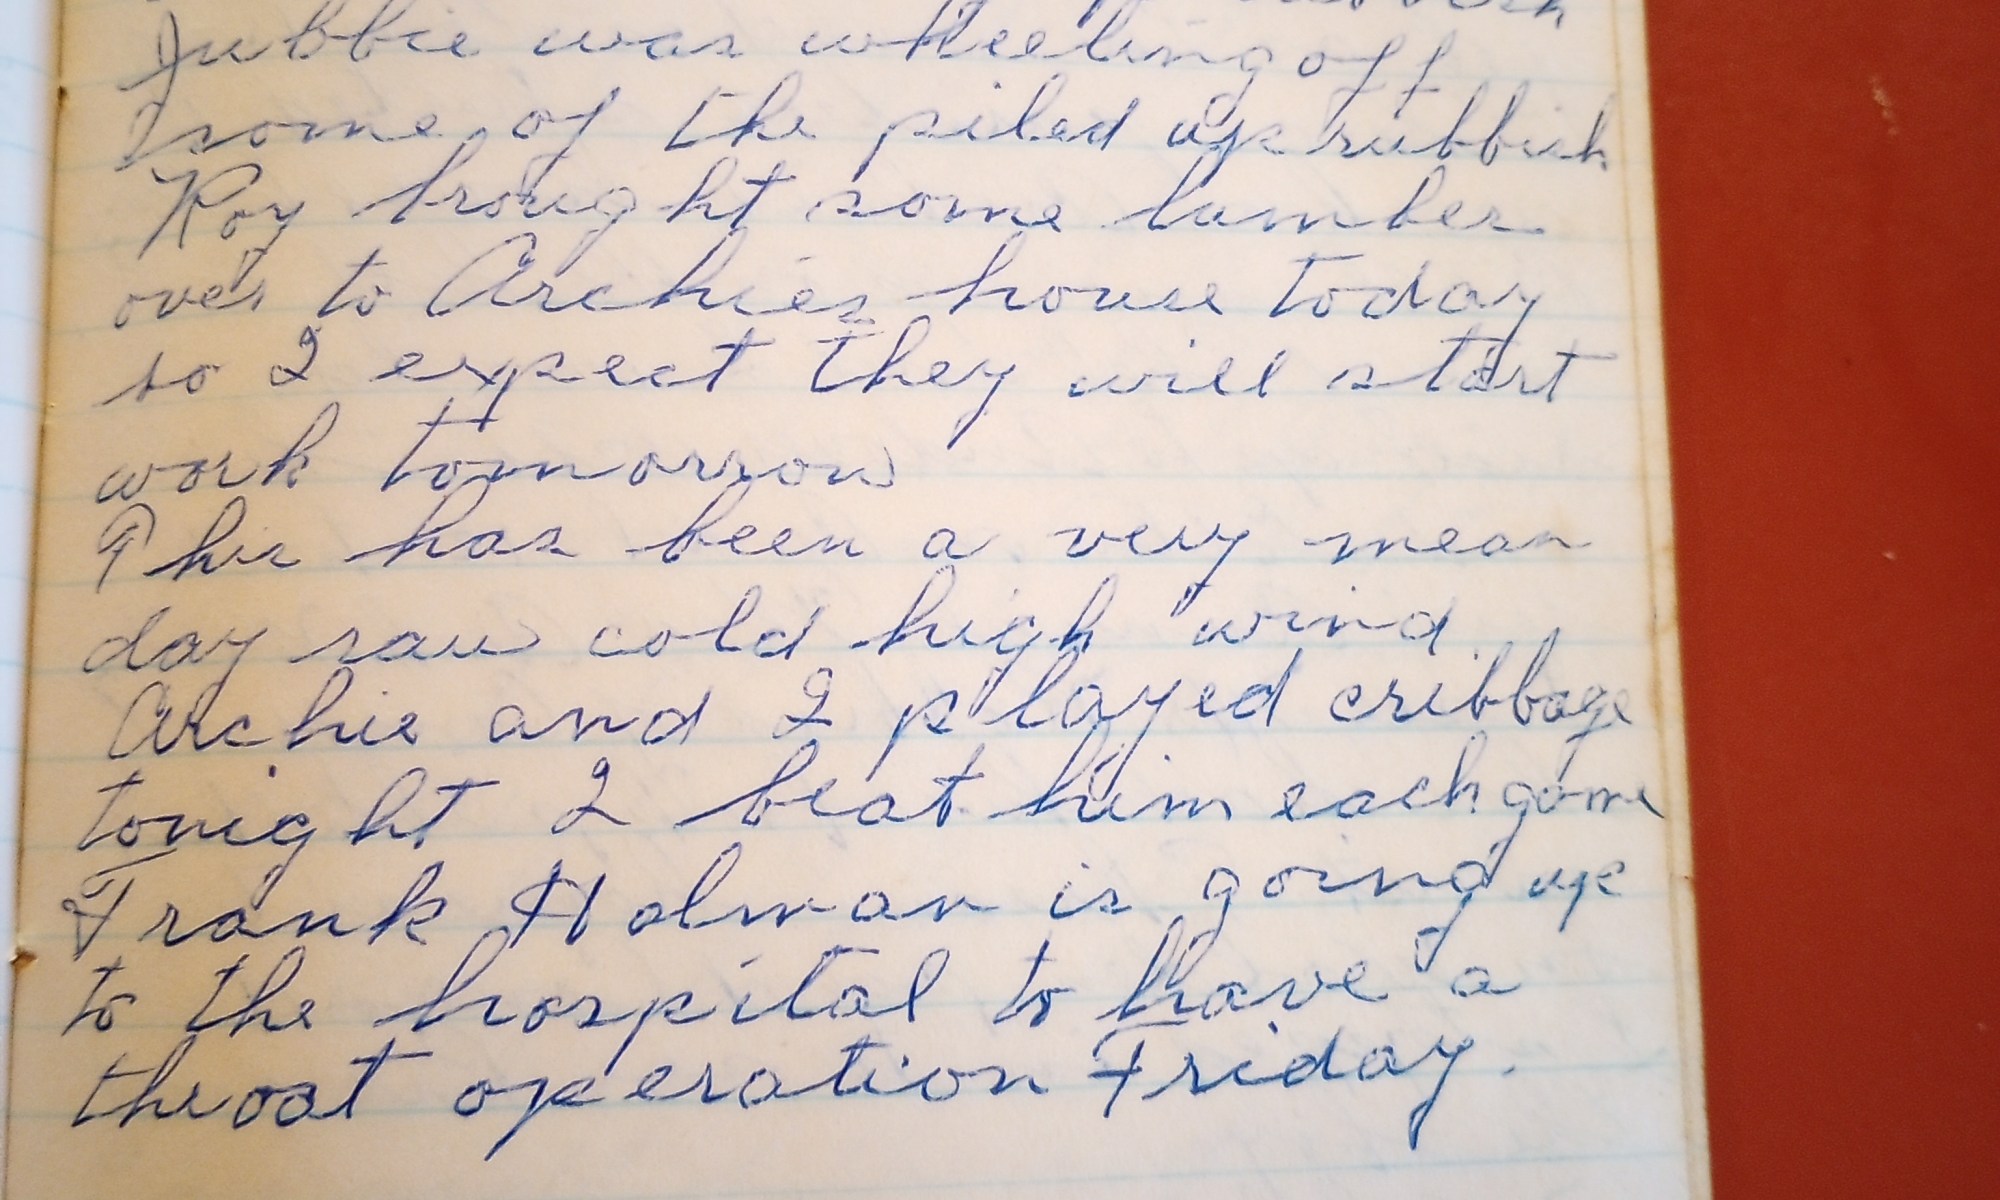 was wheeling off
some of the piled up rubbish
Roy brought some lumber
over to Archies house today
so I expect they will start
work tomorrow
This has been a very mean
day raw cold high wind
Archie and I played cribbage
tonight I beat him each game
Frank Holman is going up
to the hospital to have a
throat operation Friday.